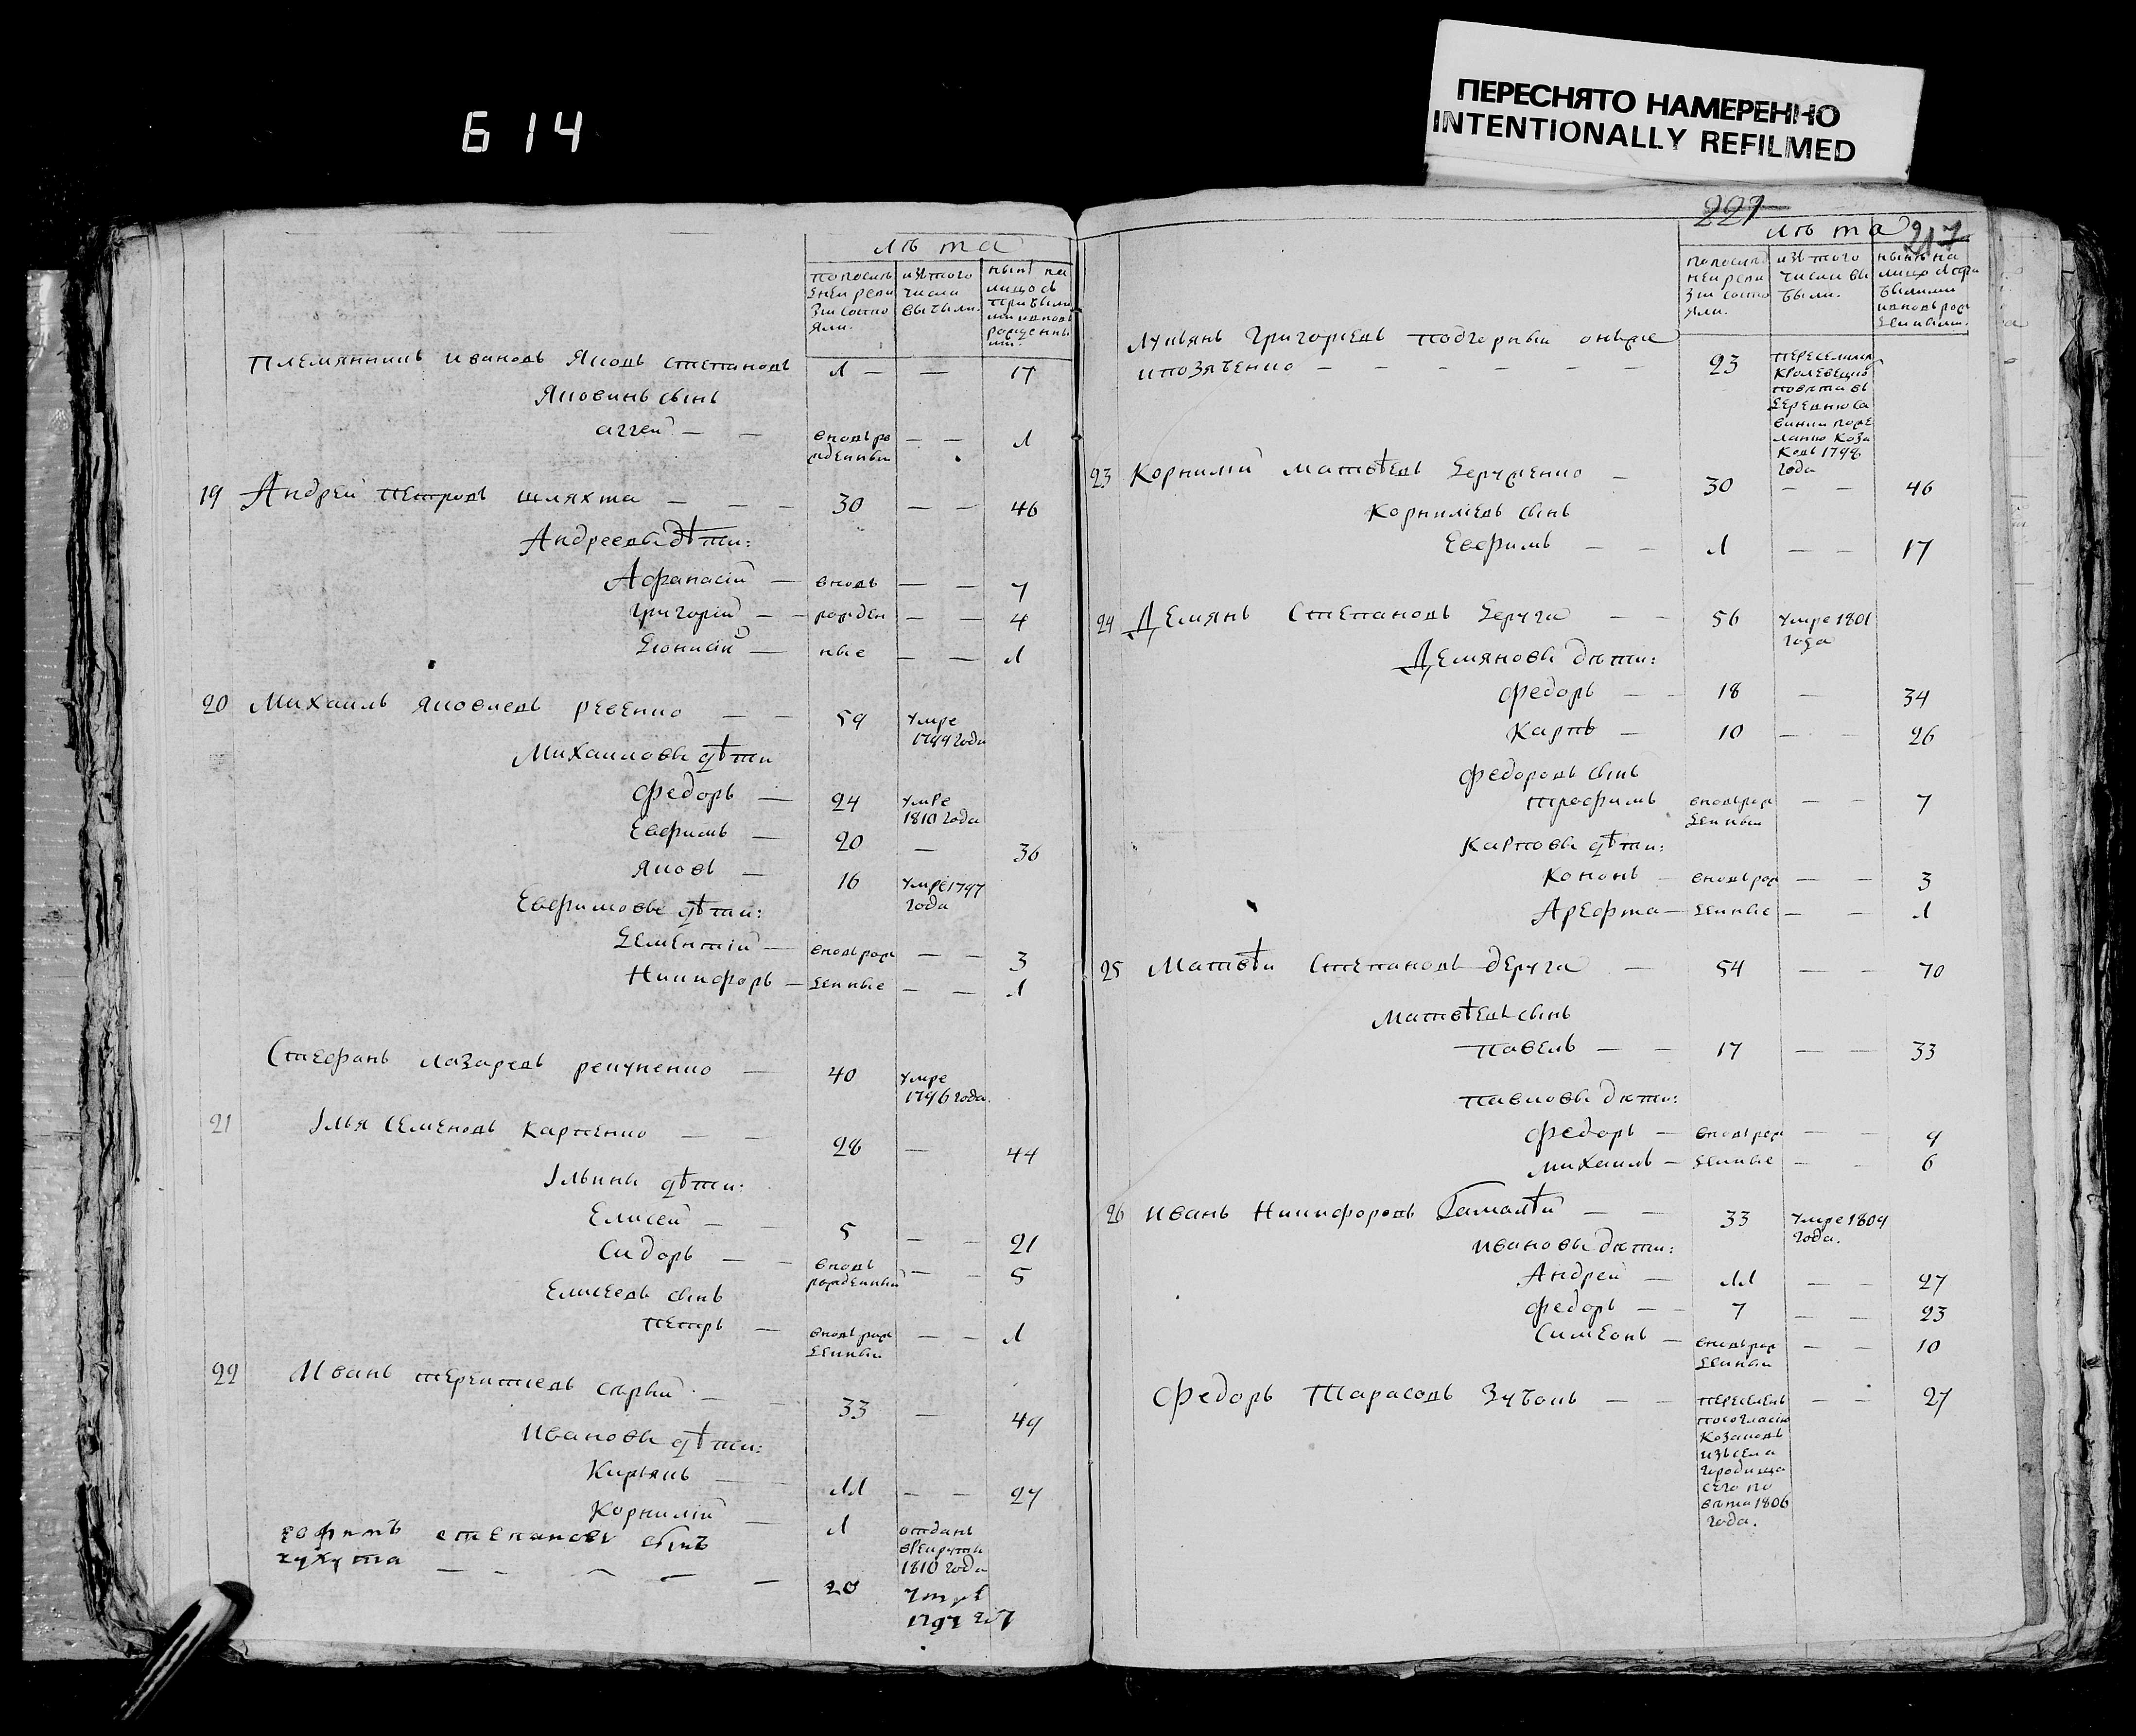 614
ПЕРЕСНЯТО НАМЕРЕННО
INTENTIONALLY REFILMED
лѣта
по послѣдней ревизіи состояли.
изъ того числа выбыли.
нынѣ на лицо съ прибылыми и вновь рожденными.
племянникъ ивановъ Яковъ степановъ 1 — — 17
Яковинъ сынъ
аггей — — вновь рожденный — — 1
19 Андрей петровъ шляхта — — — 30 — — 46
Андреевы дѣти:
Афанасій — вновь — — 7
григорій — — рожден — — 4
Діонисій — ные — — 1
20 Михаилъ яковлевъ ревенко — — 59 умре 1799 года
Михаиловы дѣти
федоръ — 24 умре 1810 года
Евфимъ — 20 — 36
Яковъ — 16 умре 1797 года
Евфимовы дѣти:
Дементій — вновь рож — — 3
Никифоръ — денные — — 1
Стефанъ лазаревъ — 40 умре 1796 года.
21 Илья семеновъ карпенко — — 28 — 44
Ильины дѣти:
Елисей — — 5 — — 21
Сидоръ — — вновь рожденный — — 5
Елисеевъ сынъ
петръ — вновь рожденный — — 1
22 Иванъ терентіевъ сѣрый — — 33 — 49
Ивановы дѣти:
Кирьянъ — — 11 — — 27
Корнилій — 1 отданъ врекруты 1810 года
евфимъ степановъ сынъ
кухута — — — — — 20 умре 1797 году
221
217
лѣта
по послѣдней ревизіи состояли.
изъ того числа выбыли.
нынѣ на лицо съ прибылыми и вновь рожденными.
лукьянъ григорьевъ подчерный онъже
и позябенко — — — — — — 23 переселился Кролевецкого повѣта въ деревню савинки по желанію козаковъ 1798 года
23 Корнилій матвѣевъ Деруженко — 30 — — 46
Корниліевъ сынъ
Евфимъ — — 1 — — 17
24 Демянъ степановъ Деруга — — 56 умре 1801 года
Демяновы дѣти:
федоръ — — 18 — 34
карпъ — 10 — — 26
федоровъ сынъ
трофимъ вновь рожденный — — 7
карповы дѣти:
кононъ — вновь рож — — 3
Арефта — денные — — 1
25 Матвѣй степановъ деруга — 54 — — 70
матвѣевъ сынъ
павелъ — — 17 — — 33
павловы дѣти:
федоръ — вновь рож — — 9
михаилъ — денные — — 6
26 иванъ Никифоровъ Гамалѣй — — 33 умре 1809 года.
ивановы дѣти:
Андрей — 11 — — 27
федоръ — — 7 — — 23
Симеонъ — вновь рожденный — — 10
федоръ тарасовъ Зубокъ — — переселенъ по согласію козаковъ изъ села городища сего повѣта 1806 года. — — 27